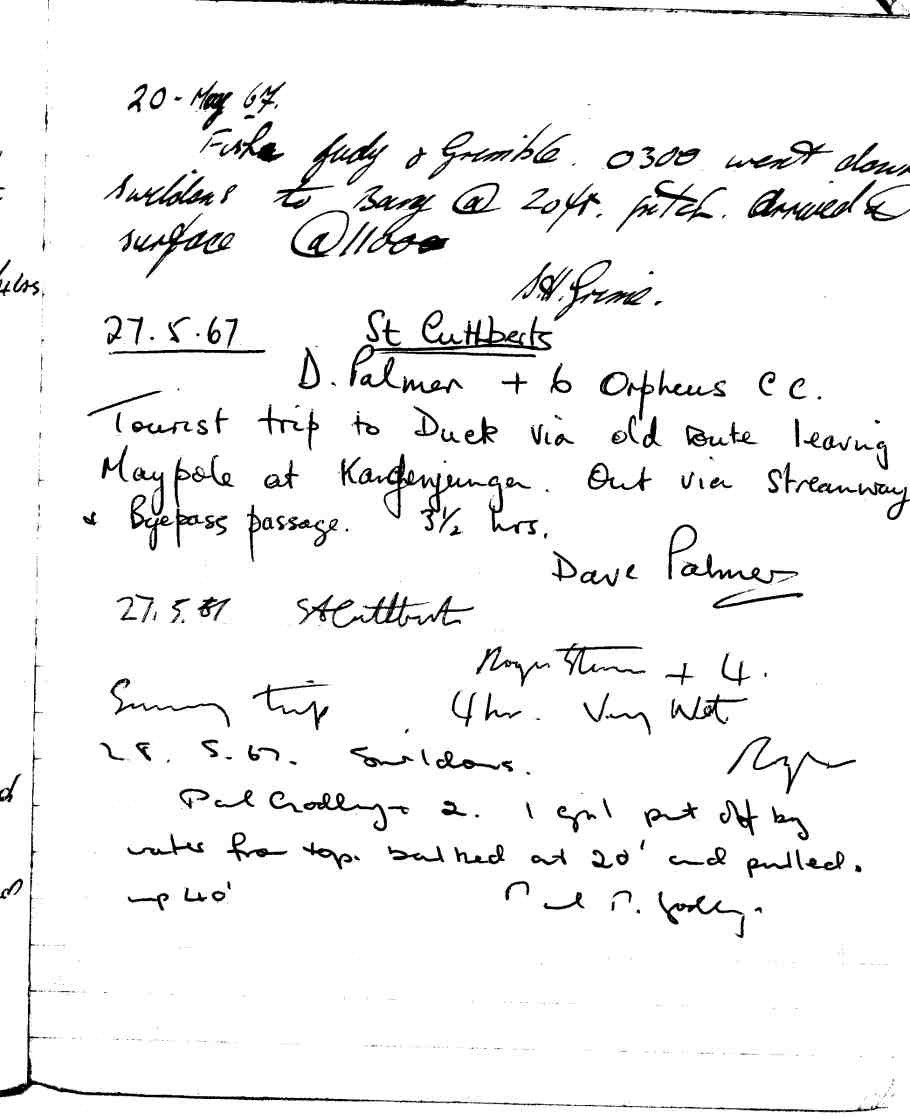 20 - May 67.
Fish Judy & Grimble. 0300 went down
Swildons to Bang @ 20ft. pitch. Arrived @
surface @ 1100
S.H. Grime.
4hrs.
27.5.67 St Cuthberts
D. Palmer + 6 Orpheus C C.
Tourist trip to Duck via old route leaving
Maypole at Kangenjunga. Out via Streamway
& Byepass passage. 3½ hrs.
Dave Palmer
27.5.67 St Cuthberts
Roger + 4.
trip 4 hr. Very Wet
28. 5. 67. Swildons. Roger
Paul Godley + 2. 1 girl put off by
water from top. balked at 20' and pulled.
up 40'